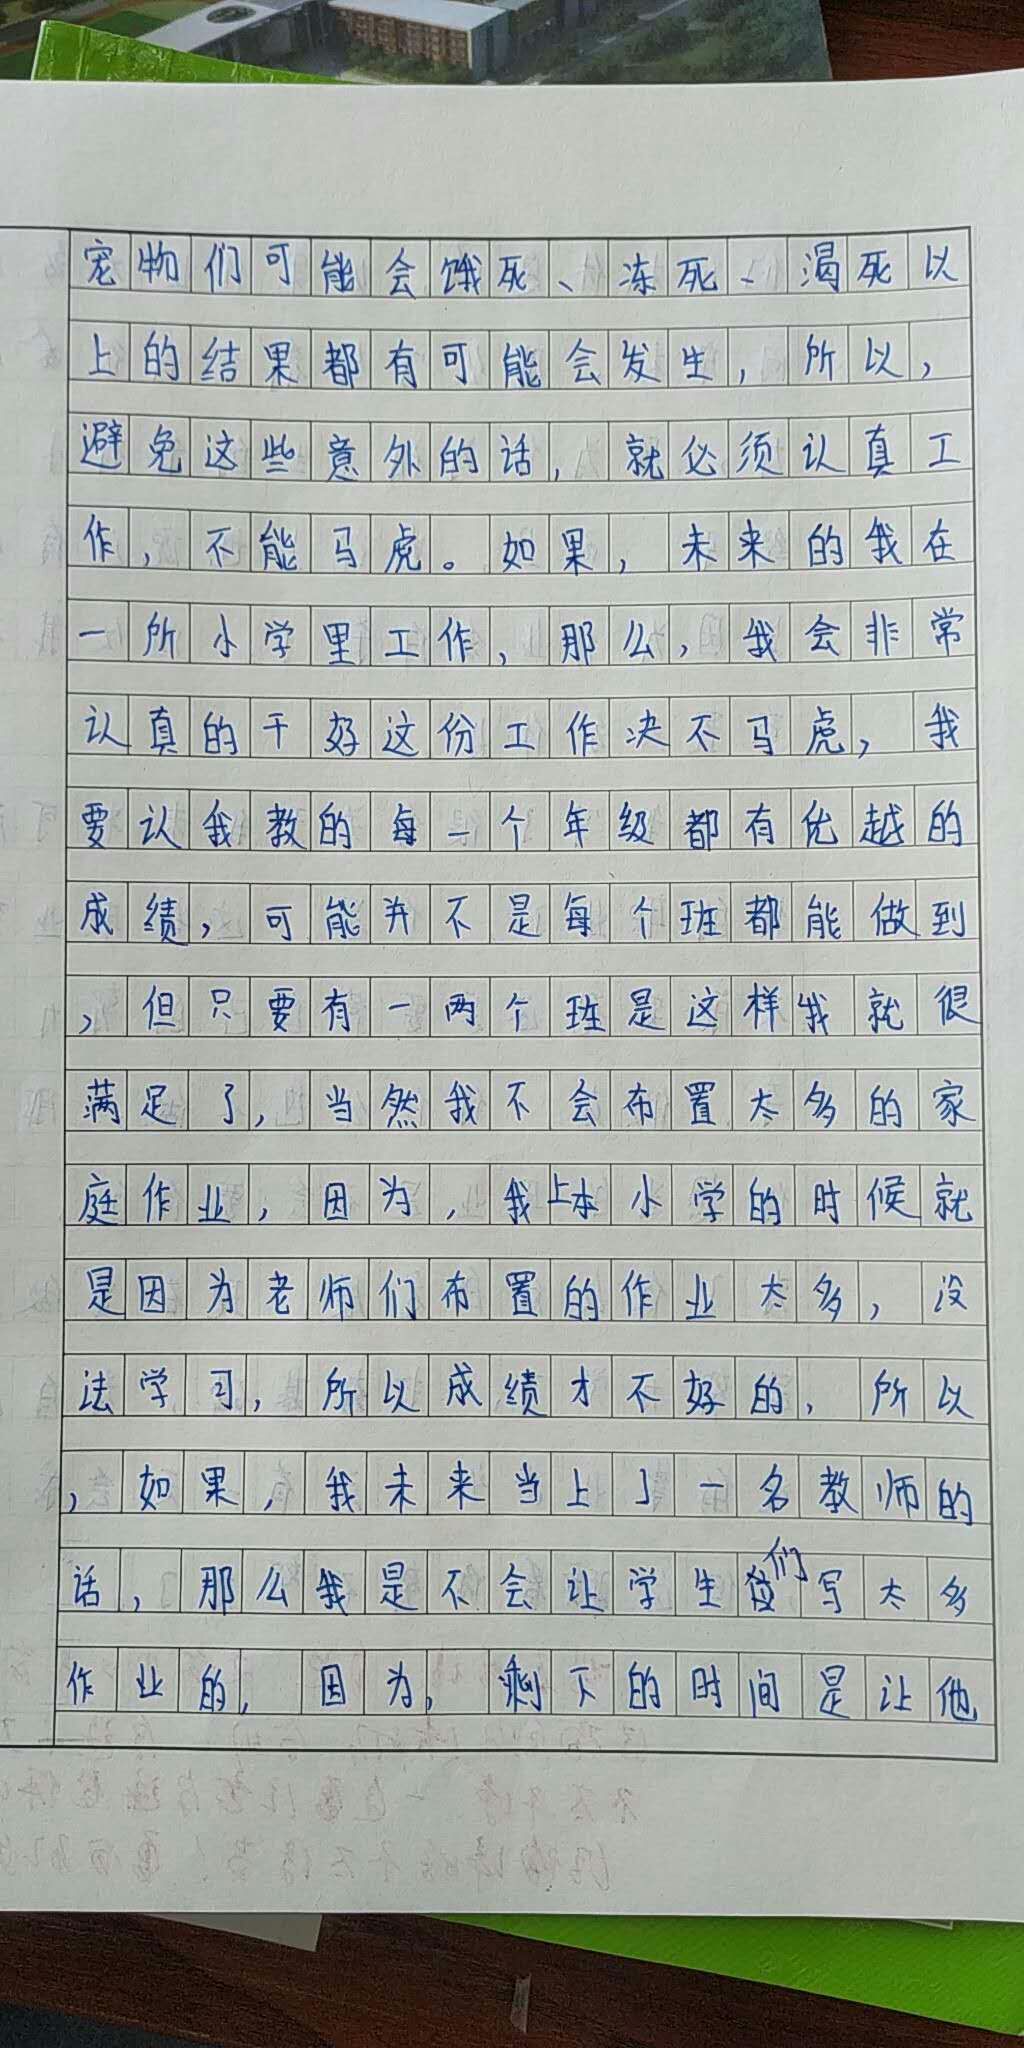 宠物们可能会饿死、冻死、渴死以
上的结果都有可能会发生，所以，
避免这些意外的话，就必须认真工
作，不能马虎。如果，未来的我在
一所小学里工作，那么，我会非常
认真的干好这份工作决不马虎，我
要认我教的每一个年级都有优越的
成绩，可能并不是每个班都能做到
，但只要有一两个班是这样我就很
满足了，当然我不会布置太多的家
庭作业，因为，我上本小学的时候就
是因为老师们布置的作业太多，没
法学习，所以成绩才不好的，所以
，如果，我未来当上了一名教师的
话，那么我是不会让学生们写太多
作业的，因为，剩下的时间是让他